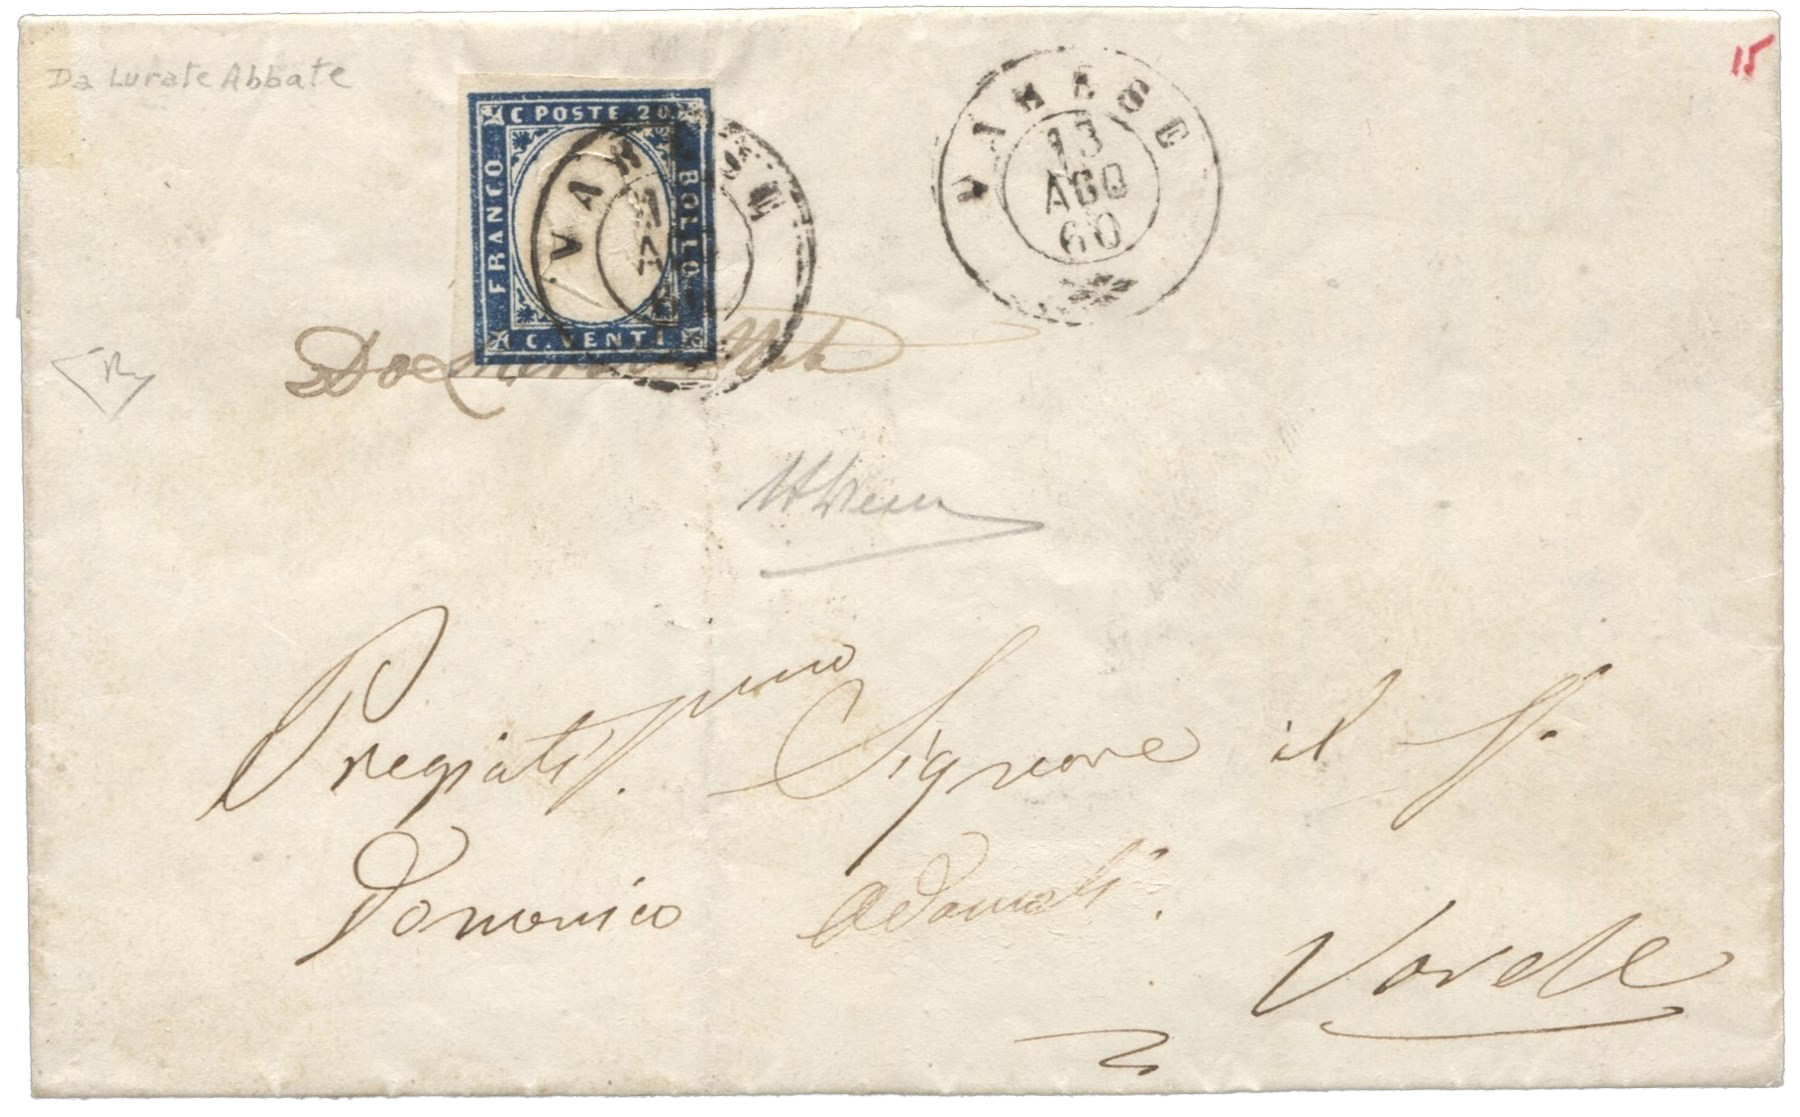 Da Lurate Abbate
15
C POSTE 20
FRANCO
BOLLO
C. VENTI
VARESE
VARESE
13
AGO
60
Da Lurate Abbate
Pregiatiss.mo Signore il S.
Domenico Adamoli
Varese